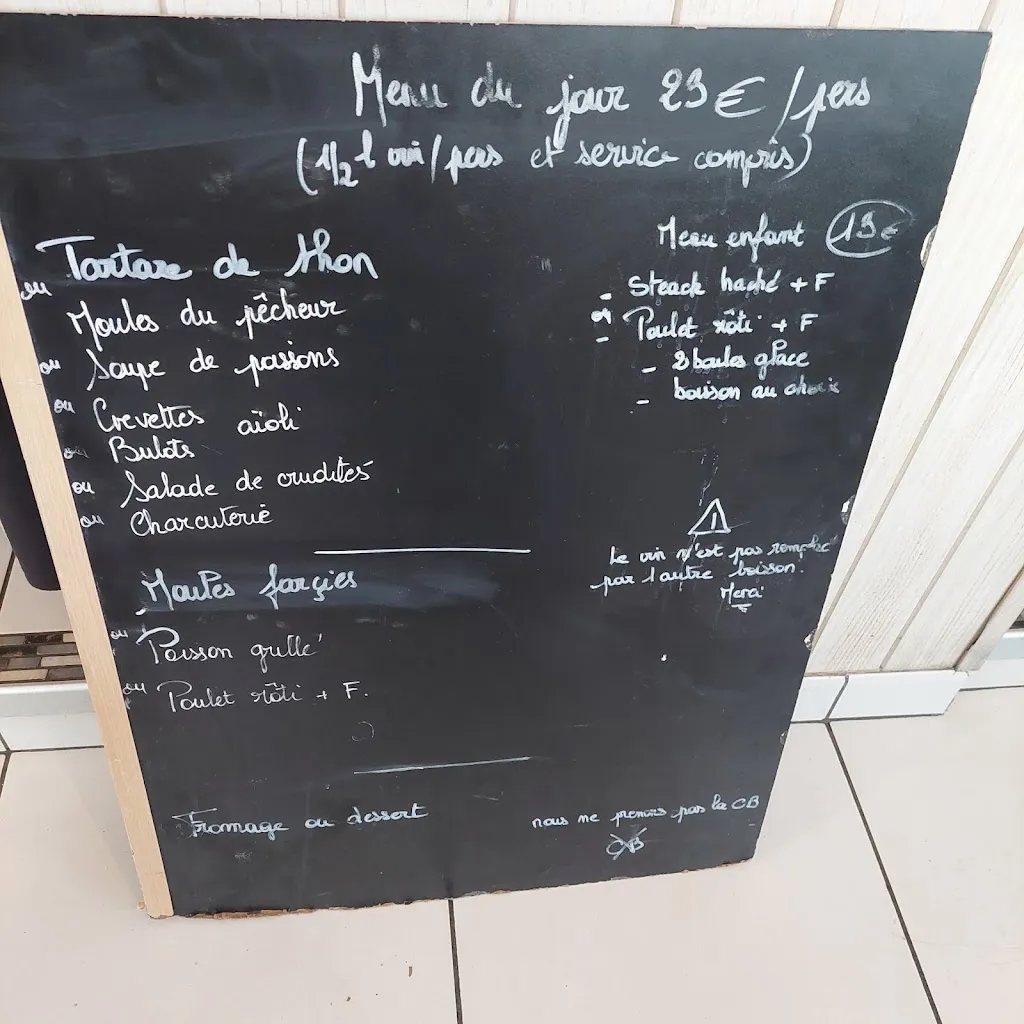 Menu du jour 23€/pers
(1/2 l vin/pers et service compris)
Tartare de thon
ou Moules du pêcheur
ou Soupe de poissons
ou Crevettes aïoli
ou Bulots
ou Salade de crudités
ou Charcuterie
Moules farçies
ou Poisson grillé
ou Poulet rôti + F.
Fromage ou dessert
Menu enfant 13€
- Steack haché + F
ou
- Poulet rôti + F
- 2 boules glace
- boisson au choix
Le vin n'est pas remplacé
par 1 autre boisson.
Merci
nous ne prenons pas la CB
CB